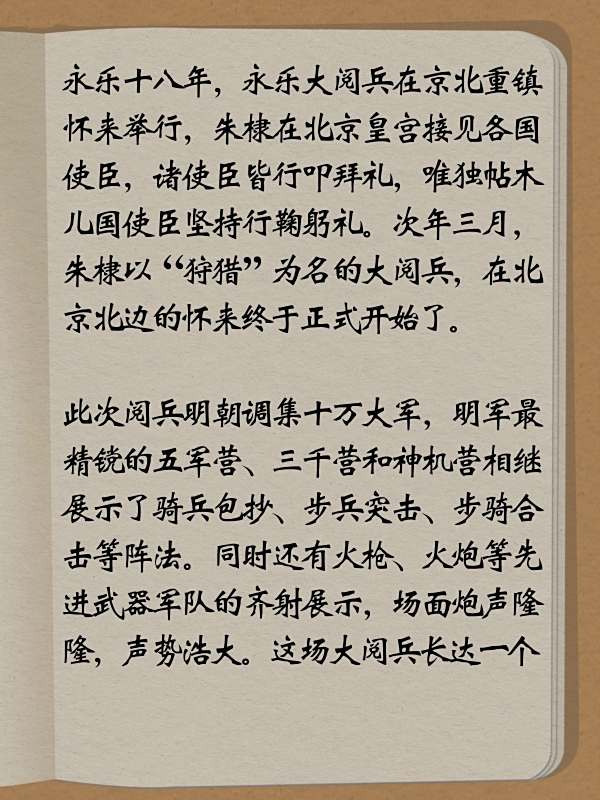 永乐十八年，永乐大阅兵在京北重镇
怀来举行，朱棣在北京皇宫接见各国
使臣，诸使臣皆行叩拜礼，唯独帖木
儿国使臣坚持行鞠躬礼。次年三月，
朱棣以“狩猎”为名的大阅兵，在北
京北边的怀来终于正式开始了。
此次阅兵明朝调集十万大军，明军最
精锐的五军营、三千营和神机营相继
展示了骑兵包抄、步兵突击、步骑合
击等阵法。同时还有火枪、火炮等先
进武器军队的齐射展示，场面炮声隆
隆，声势浩大。这场大阅兵长达一个